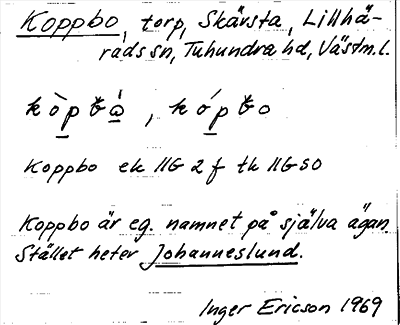 Koppbo, torp, Skärsta, Lillhä-
rads sn, Tuhundra hd, Västm.l.
Koppbo ek 11G 2 f tk 11G SO
Koppbo är eg. namnet på själva ägan.
Stället heter Johanneslund.
Inger Ericson 1969